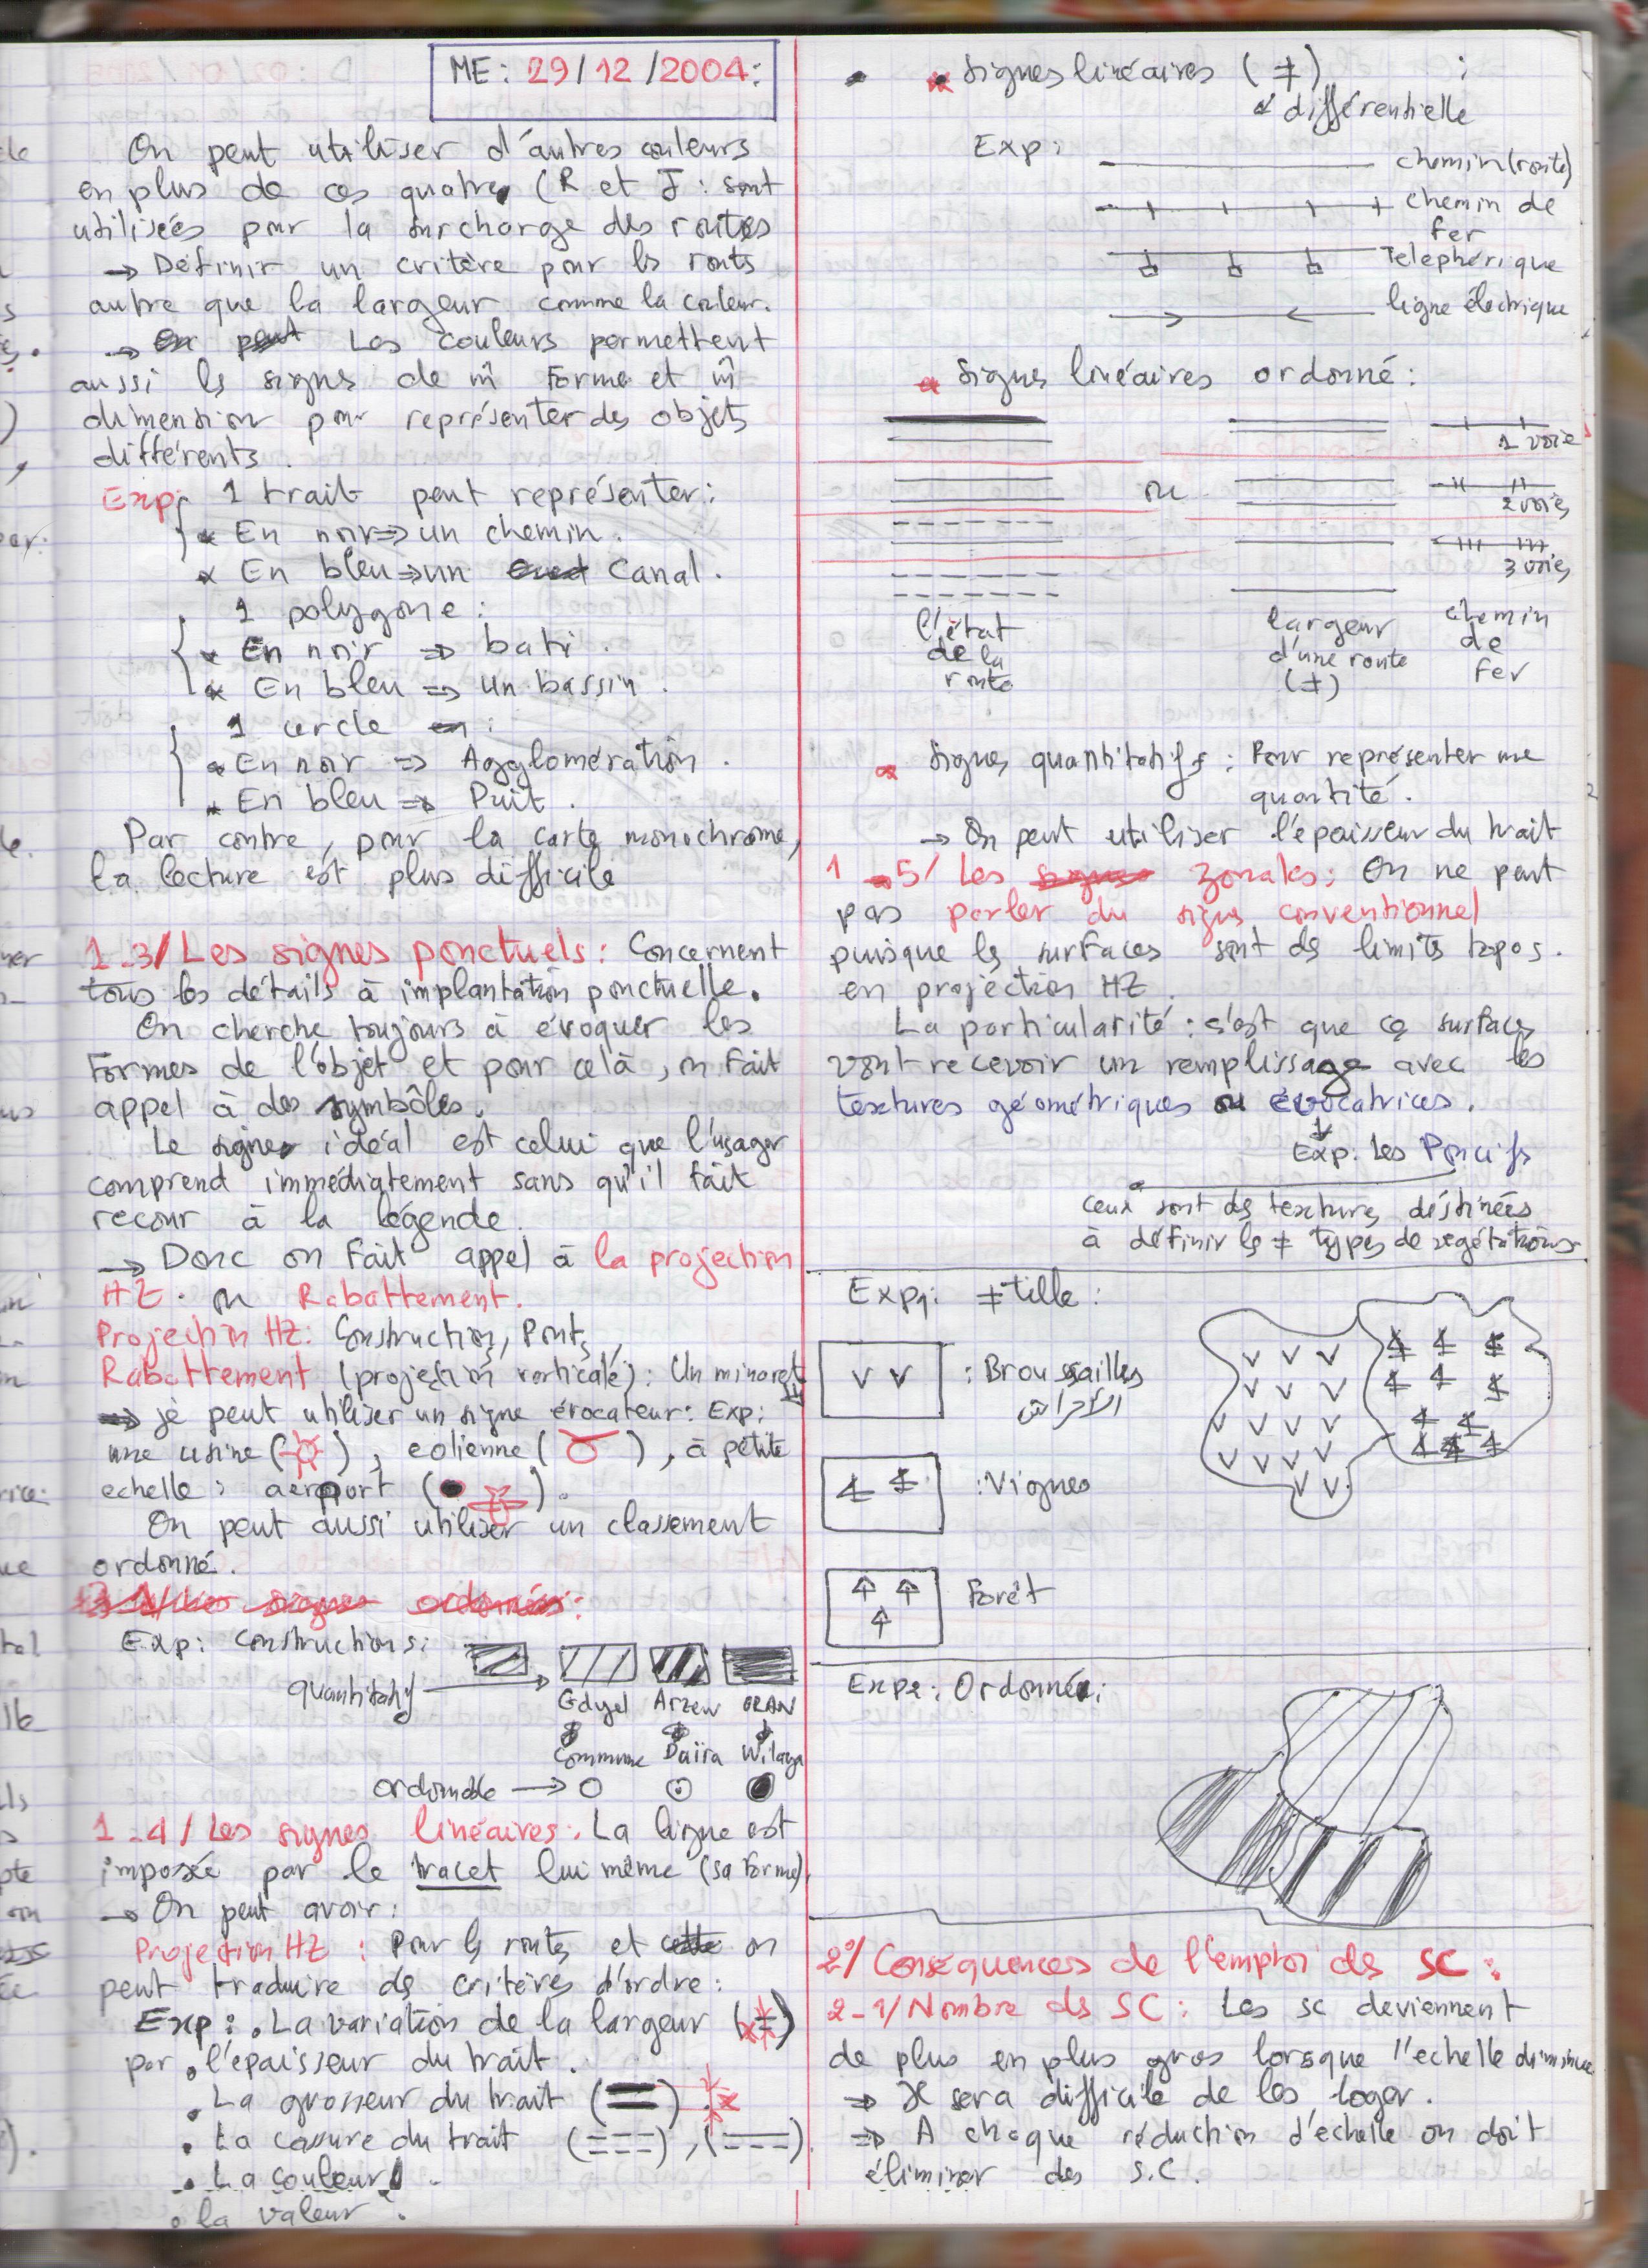 ME: 29/12/2004:
On peut utiliser d'autres couleurs
en plus de ces quatre (R et J : sont
utilisées pour la surcharge des routes
→ Définir un critère pour ls routs
autre que la largeur comme la couleur.
→ Les couleurs permettent
aussi ls signes de m̂ Forme et m̂
dimension pour représenter des objets
différents.
Exp: 1 trait peut représenter:
* En noir ⇒ un chemin.
* En bleu ⇒ un Canal.
1 polygone:
* En noir ⇒ bati.
* En bleu ⇒ un bassin.
1 cercle :
* En noir ⇒ Agglomération.
* En bleu ⇒ Puit.
Par contre, pour la carte monochrome,
la lecture est plus difficile
1-3/ Les signes ponctuels: Concernent
tous les détails à implantation ponctuelle.
On cherche toujours à évoquer les
Formes de l'objet et pour celà, on fait
appel à des symbôles.
Le signe idéal est celui que l'usager
comprend immédiatement sans qu'il fait
recour à la légende.
→ Donc on fait appel à la projection
HZ. ou Rabattement.
Projection HZ: Construction, Ponts,
Rabattement (projection verticale): Un minaret
⇒ je peut utiliser un signe évocateur: Exp:
une usine ( ), eolienne ( ), à petite
echelle: aeroport ( ).
On peut aussi utiliser un classement
ordonné.
Exp: Constructions:
quantitatif →
Gdyel Arzew ORAN
Commune Daïra Wilaya
ordonnée →
1-4/ Les signes linéaires: La ligne est
imposée par le tracet lui même (sa forme)
→ On peut avoir:
Projection HZ: Pour ls routes et on
peut traduire des critères d'ordre:
Exp: . La variation de la largeur (=)
par . l'épaisseur du trait.
. La grosseur du trait (=)
. La cassure du trait (===), (===)
. La couleur.
. la valeur.
* Signes linéaires (≠) :
différentielle
Exp:
chemin (route)
chemin de
fer
Telephérique
ligne électrique
* Signes linéaires ordonné:
1 voie
ou
2 voies
3 voies
l'état
de la
route
largeur
d'une route
(≠)
chemin
de
fer
* Signes quantitatifs: Pour représenter une
quantité.
→ On peut utiliser l'épaisseur du trait
1-5/ Les zonales: On ne peut
pas parler du signe conventionnel
puisque ls surfaces sont ds limits topos.
en projection HZ.
La particularité: c'est que ce surfaces
vont recevoir un remplissage avec les
textures géométriques ou évocatrices.
Exp. les Poncifs
ceux sont ds textures déstinées
à définir ls ≠ types de vegétations.
Exp1: ≠tille:
V V : Broussailles
الأحراش
: Vignes
Forêt
Exp2: Ordonnée:
2°/ Conséquences de l'emploi des SC:
2-1/ Nombre ds SC: Les sc deviennent
de plus en plus gros lorsque l'echelle diminue
⇒ Il sera difficile de les loger.
⇒ A chaque réduction d'echelle on doit
éliminer des S.C.